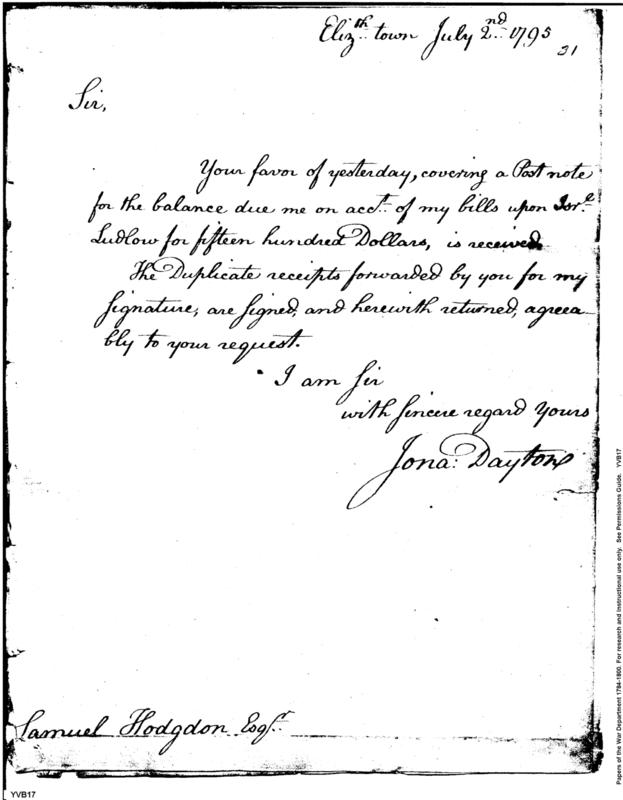 Eliz.th town July 2.nd 1795
31
Sir,
Your favor of yesterday, covering a Post note
for the balance due me on acc.t of my bills upon Isr.l
Ludlow for fifteen hundred Dollars, is received
The Duplicate receipts forwarded by you for my
signature, are signed, and herewith returned, agreea-
bly to your request.
I am Sir
with sincere regard Yours
Jona: Dayton
Samuel Hodgdon Esq.r
YVB17
Papers of the War Department 1784-1800. For research and instructional use only. See Permissions Guide. YVB17